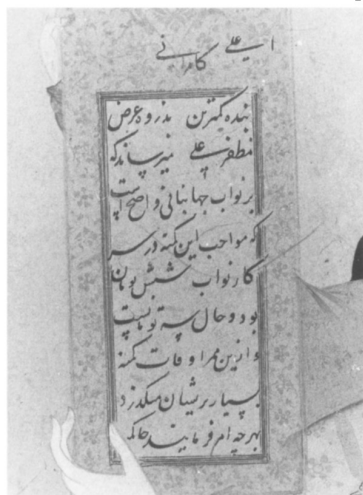 علی
کامرانی
بنده کمترین بذروه عرض
مظفر علی میرساند که
بر نواب جهانبانی واضح است
که مواجب این کمینه در سر
کار نواب شش تومان
بود و حال سه تومانست
و ازین ممر اوقات کمینه
بسیار پریشان میگذرد
بهرچه امر فرمایند حاکمند